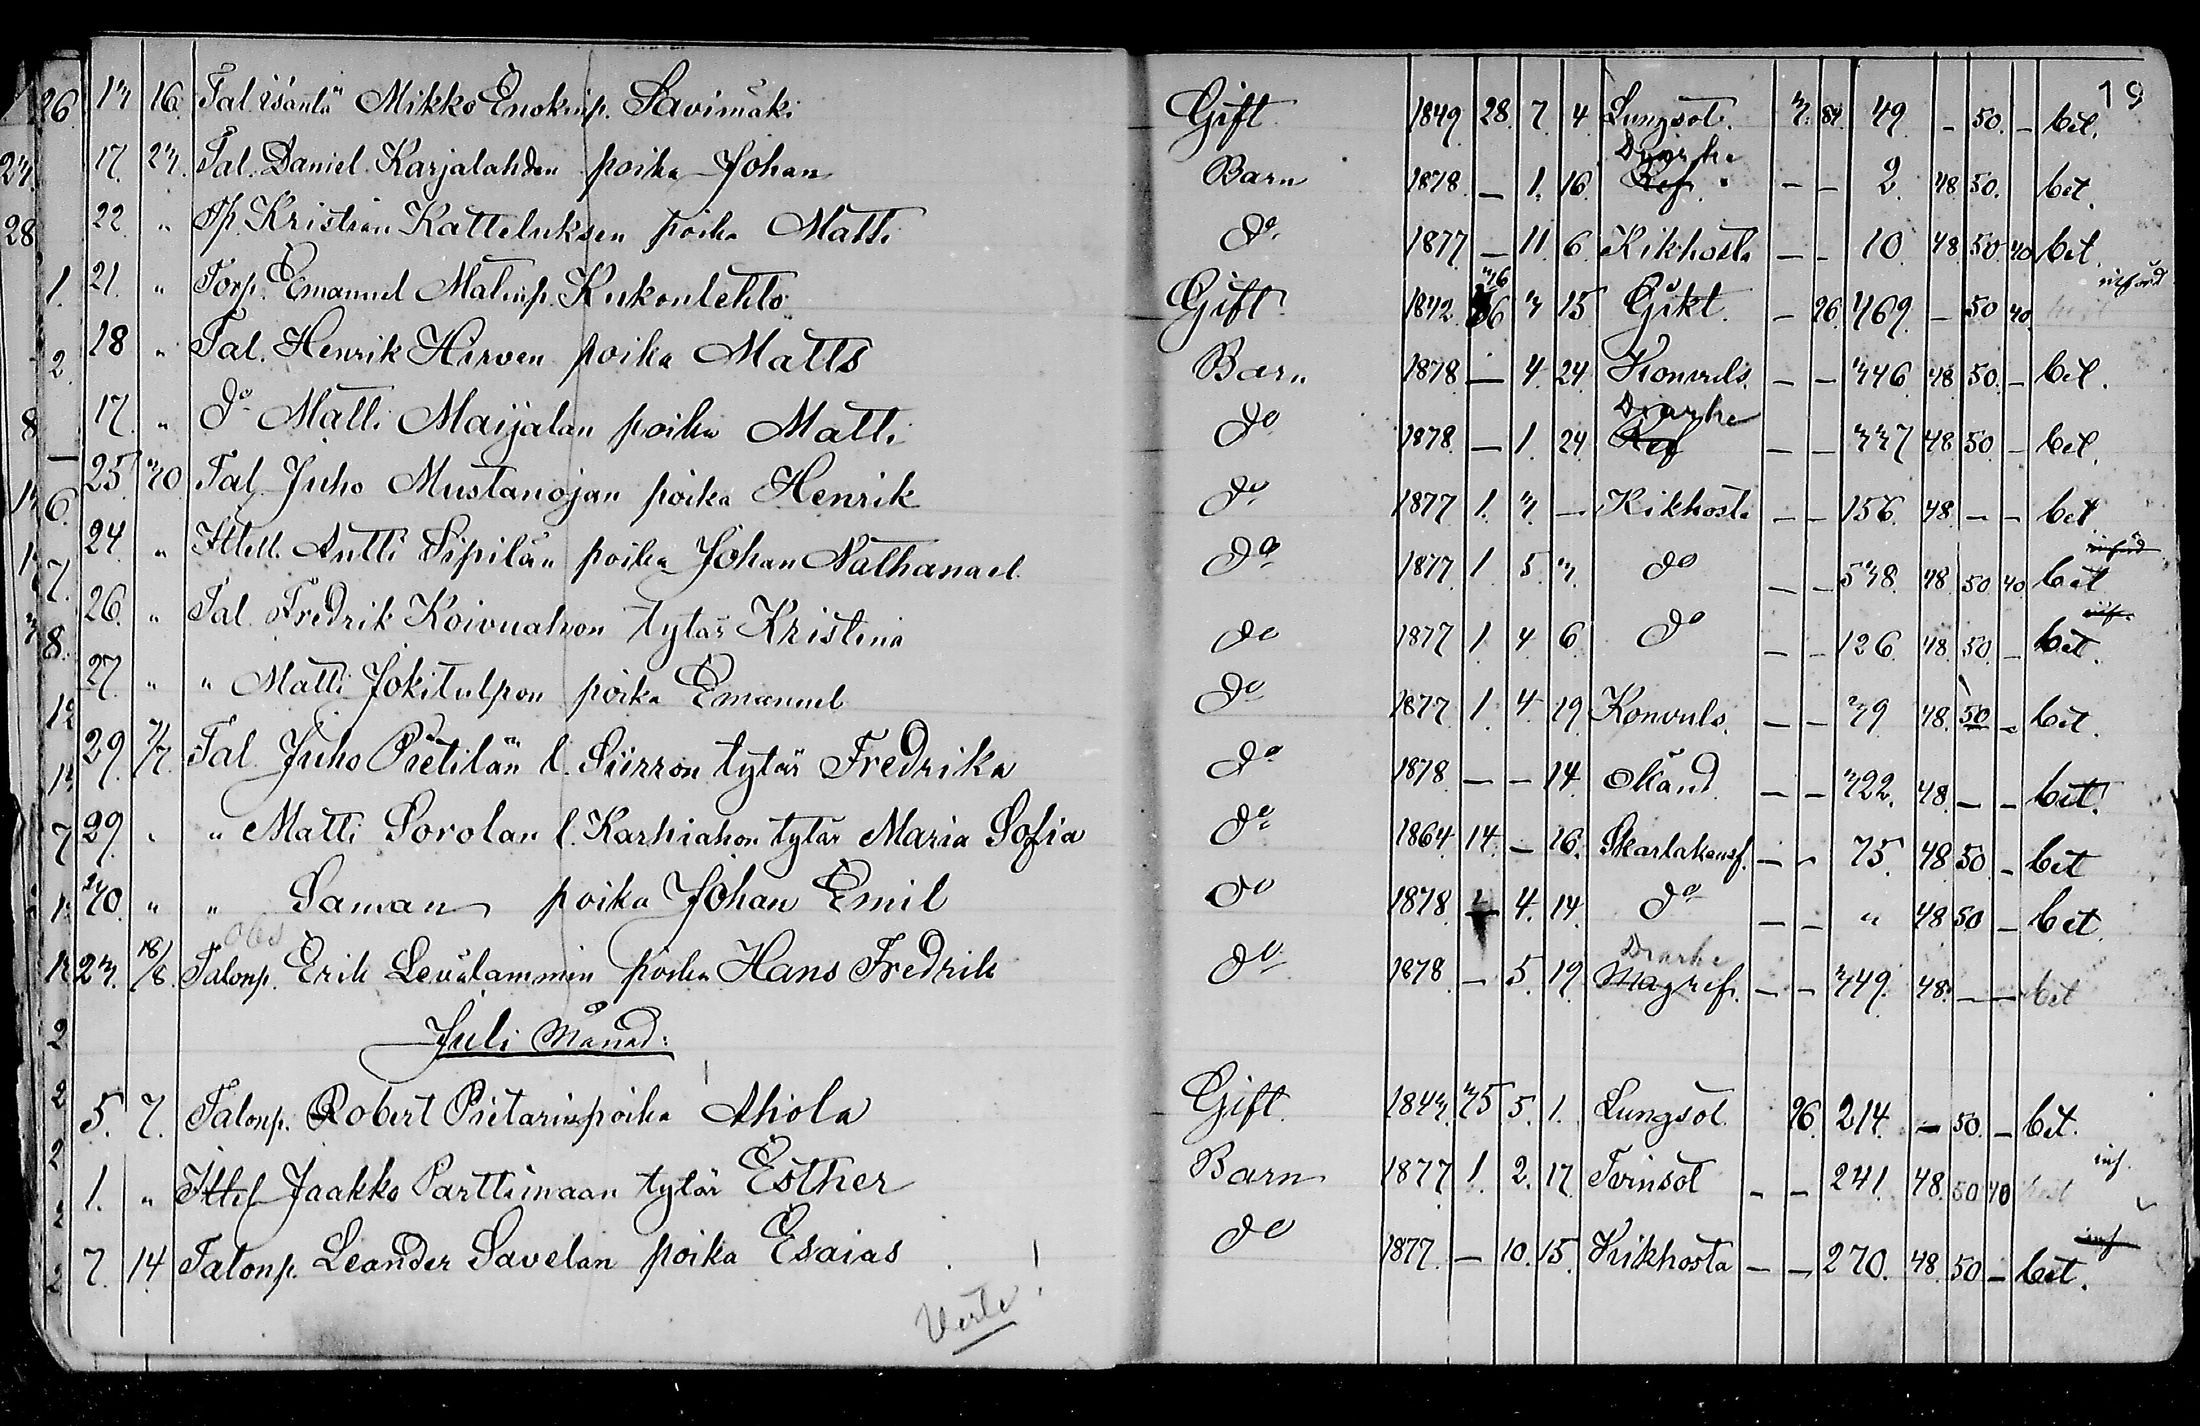 19
13 16 Tal. isäntä Mikko Enokinp. Savimäki Gift 1849 28. 7. 4 Lungsot. 3. 84. 49 - 50. - bet.
17. 23. Tal. Daniel Karjalahden poika Johan Barn 1878 - 1. 16 Ref. Diarhe - - 2 48 50. bet.
22 " Tp. Kristian Katteluksen poika Matti do 1877 - 11 6 Kikhosta - - 10 48 50 40 bet.
21. " Torp. Emanuel Matinp. Kukonlehto Gift 1842 36 3 15 Gikt. - 96. 469 - 50 40 införd
18 " Tal. Henrik Hirven poika Matts Barn 1878 - 4. 24 Konvuls. - - 346 48 50. - bet.
17. " do Matti Maijalan poika Matti do 1878 - 1. 24 Ref Diarhe - - 337 48 50 - bet.
25 30 Tal. Juho Mustanojan poika Henrik do 1877 1. 3. - Kikhosta - - 156. 48 - - bet
24 " Ittell. Antti Sipilän poika Johan Nathanael do 1877 1 5. 3. do - - 538 48 50 40. bet införd
26. " Tal. Fredrik Koivuahon tytär Kristina do 1877 1. 4 6 do - - 126. 48. 50. - bet. inf.
27. " " Matti Jokitulpon poika Emanuel do 1877 1. 4. 19 Konvuls. - - 39 48. 50 - bet.
29. 7/7. Tal. Juho Pietilän l. Siirron tytär Fredrika do 1878 - - 14 Okänd - - 322. 48. - - bet.
29. " " Matti Sorolan l. Karhiahon tytär Maria Sofia do 1864 14. - 16. Skarlakansf. - - 75. 48 50 - bet
30. " " Saman poika Johan Emil do 1878 - 4. 14 do - - " 48 50 - bet.
obs
23. 18/8. Talonp. Erik Levälammin poika Hans Fredrik do 1878 - 5. 19 Magref. Diarhe - - 349. 48. - - bet
Juli Månad:
5. 7. Talonp. Robert Pietarinpoika Ahola Gift. 1843 35 5 1. Lungsot 96. 214. - 50. - bet.
1. " Ittel Jaakko Parttimaan tytär Esther Barn 1877 1. 2. 17 Tvinsot - - 241. 48. 50 40 inf.
7. 14. Talonp. Leander Savelan poika Esaias do 1877. - 10. 15. Kikhosta - - 270. 48. 50 - bet. inf
Verte!